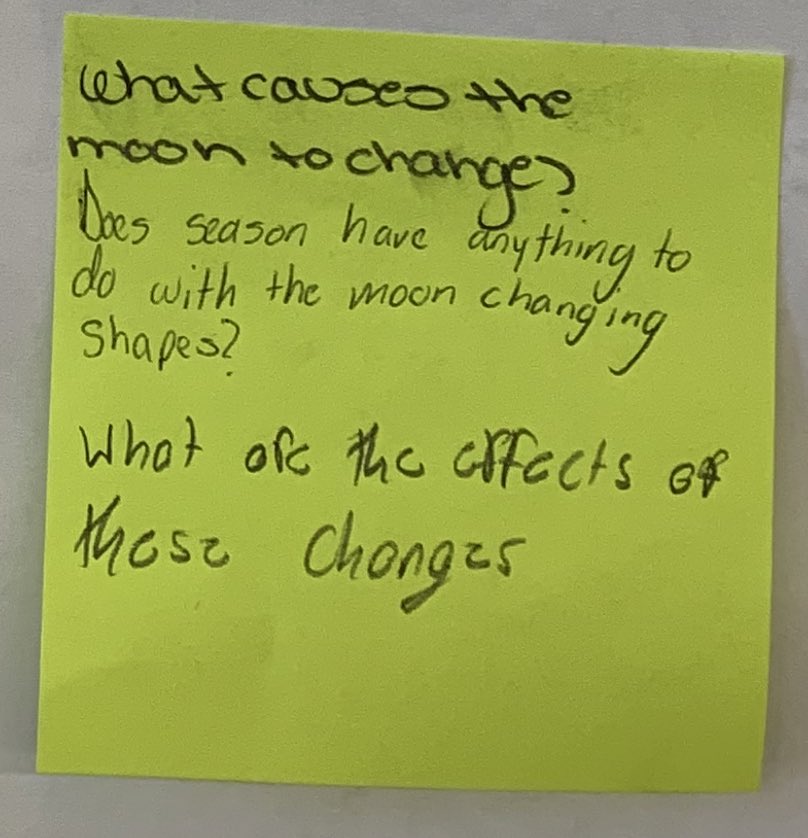 What causes the
moon to change?
Does season have anything to
do with the moon changing
shapes?
What are the effects of
these changes